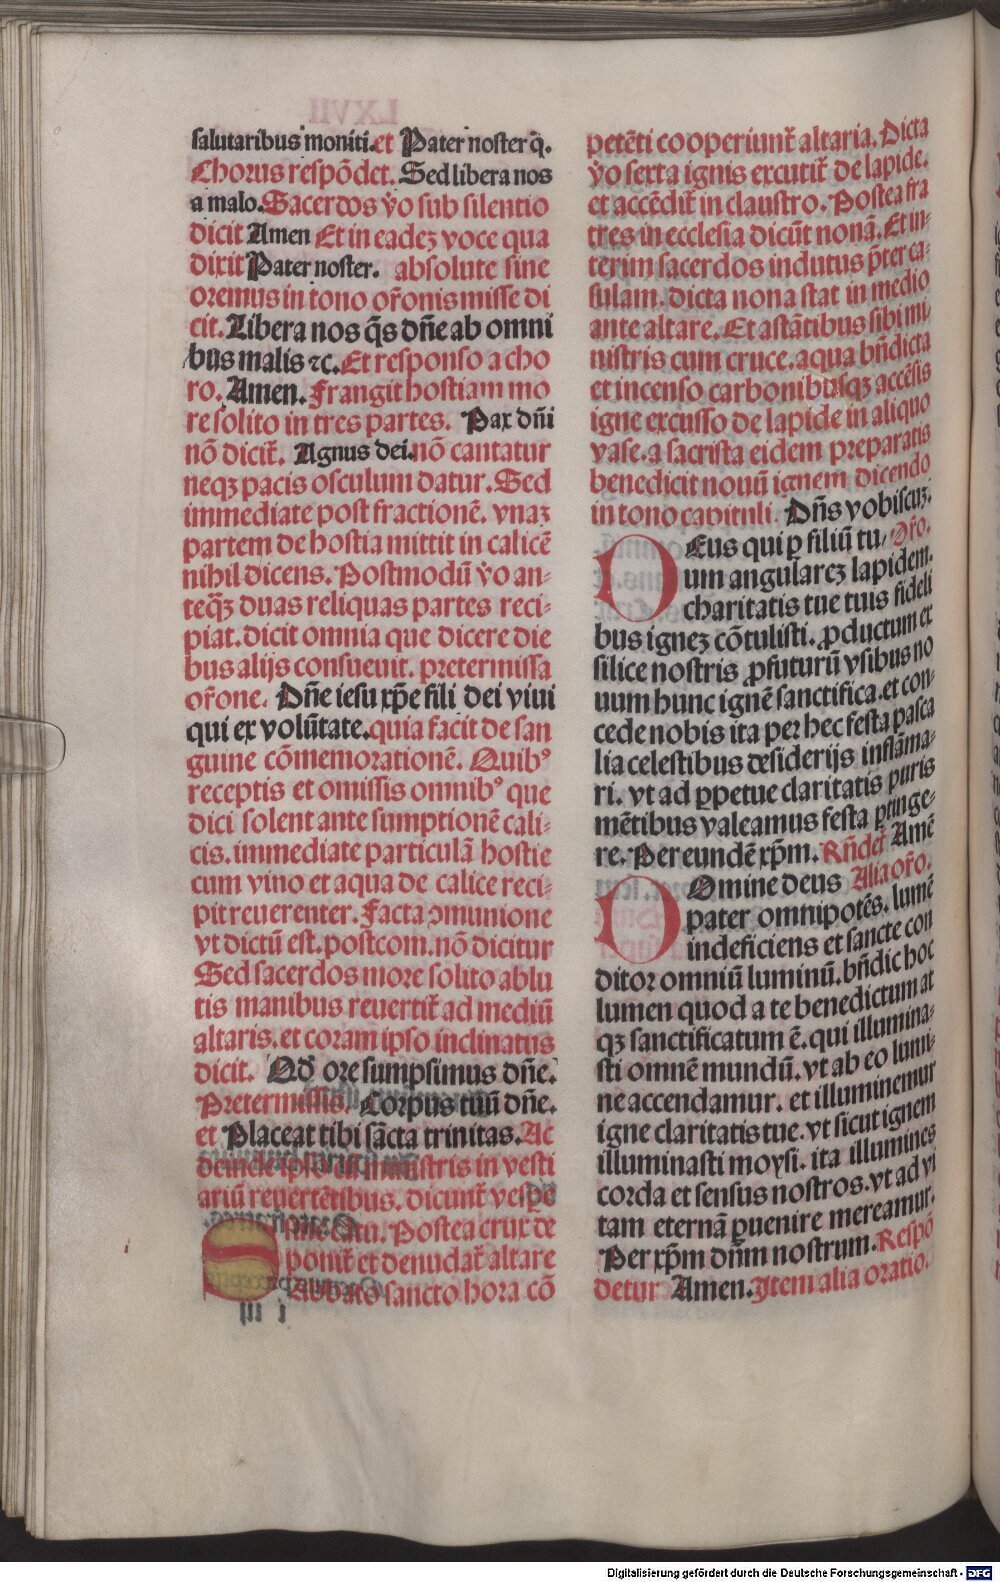 salutaribus moniti.et Pater noster q̃.
Chorus respõdet. Sed libera nos
a malo. Sacerdos ṽo sub silentio
dicit Amen Et in eadeꝫ voce qua
dixit Pater noster. absolute sine
oremus in tono or̃onis misse di
cit. Libera nos q̃s dñe ab omni
bus malis ⁊c. Et responso a cho
ro. Amen. Frangit hostiam mo
re solito in tres partes. Pax dñi
nõ dicit̃. Agnus dei. nõ cantatur
neqꝫ pacis osculum datur. Sed
immediate post fractionẽ. vnaꝫ
partem de hostia mittit in calicẽ
nihil dicens. Postmodũ ṽo an-
teq̃ꝫ duas reliquas partes reci-
piat. dicit omnia que dicere die
bus alijs consueuit. pretermissa
or̃one. Dñe iesu xp̃e fili dei viui
qui ex volũtate. quia facit de san
guine cõmemorationẽ. Quibꝰ
receptis et omissis omnibꝰ que
dici solent ante sumptionẽ cali-
cis. immediate particulã hostie
cum vino et aqua de calice reci-
pit reuerenter. Facta ↄmunione
vt dictũ est. postcom. nõ dicitur
Sed sacerdos more solito ablu
tis manibus reuertit̃ ad mediũ
altaris. et coram ipso inclinatus
dicit. Qd̃ ore sumpsimus dñe.
Pretermissis. Corpus tuũ dñe.
et Placeat tibi sãcta trinitas. Ac
deinde ipso ministris in vesti
ariũ reuertẽtibus. dicunt̃ vespe
sine cãtu. Postea crux de
ponit̃ et denudat̃ altare
Sabbato sancto hora cõ
petẽti cooperiunt̃ altaria. Dicta
ṽo sexta ignis excutit̃ de lapide.
et accẽdit̃ in claustro. Postea fra
tres in ecclesia dicũt nonã. Et in-
terim sacerdos indutus p̃ter ca-
sulam. dicta nona stat in medio
ante altare. Et astãtibus sibi mi-
nistris cum cruce. aqua bñdicta
et incenso carbonibusqꝫ accẽsis
igne excusso de lapide in aliquo
vase. a sacrista eidem preparatis
benedicit nouũ ignem dicendo
in tono capituli. Dñs vobiscuꝫ.
DEus qui ꝑ filiũ tu- Or̃o.
um angulareꝫ lapidem.
charitatis tue tuis fideli
bus igneꝫ cõtulisti. ꝓductum ex
silice nostris ꝓfuturũ vsibus no
uum hunc ignẽ sanctifica. et con-
cede nobis ita per hec festa pasca
lia celestibus desiderijs inflãma-
ri. vt ad ꝑpetue claritatis puris
mẽtibus valeamus festa ꝑtinge-
re. Per eundẽ xp̃m. Rñdet̃ Amẽ
DOmine deus Alia or̃o.
pater omnipotẽs. lumẽ
indeficiens et sancte con
ditor omniũ luminũ. bñdic hoc
lumen quod a te benedictum at
qꝫ sanctificatum ẽ. qui illumina-
sti omnẽ mundũ. vt ab eo lumi-
ne accendamur. et illuminemur
igne claritatis tue. vt sicut ignem
illuminasti moysi. ita illumines
corda et sensus nostros. vt ad vi
tam eternã ꝑuenire mereamur.
Per xp̃m dñm nostrum. Respõ
detur Amen. Item alia oratio.
Digitalisierung gefördert durch die Deutsche Forschungsgemeinschaft - DFG